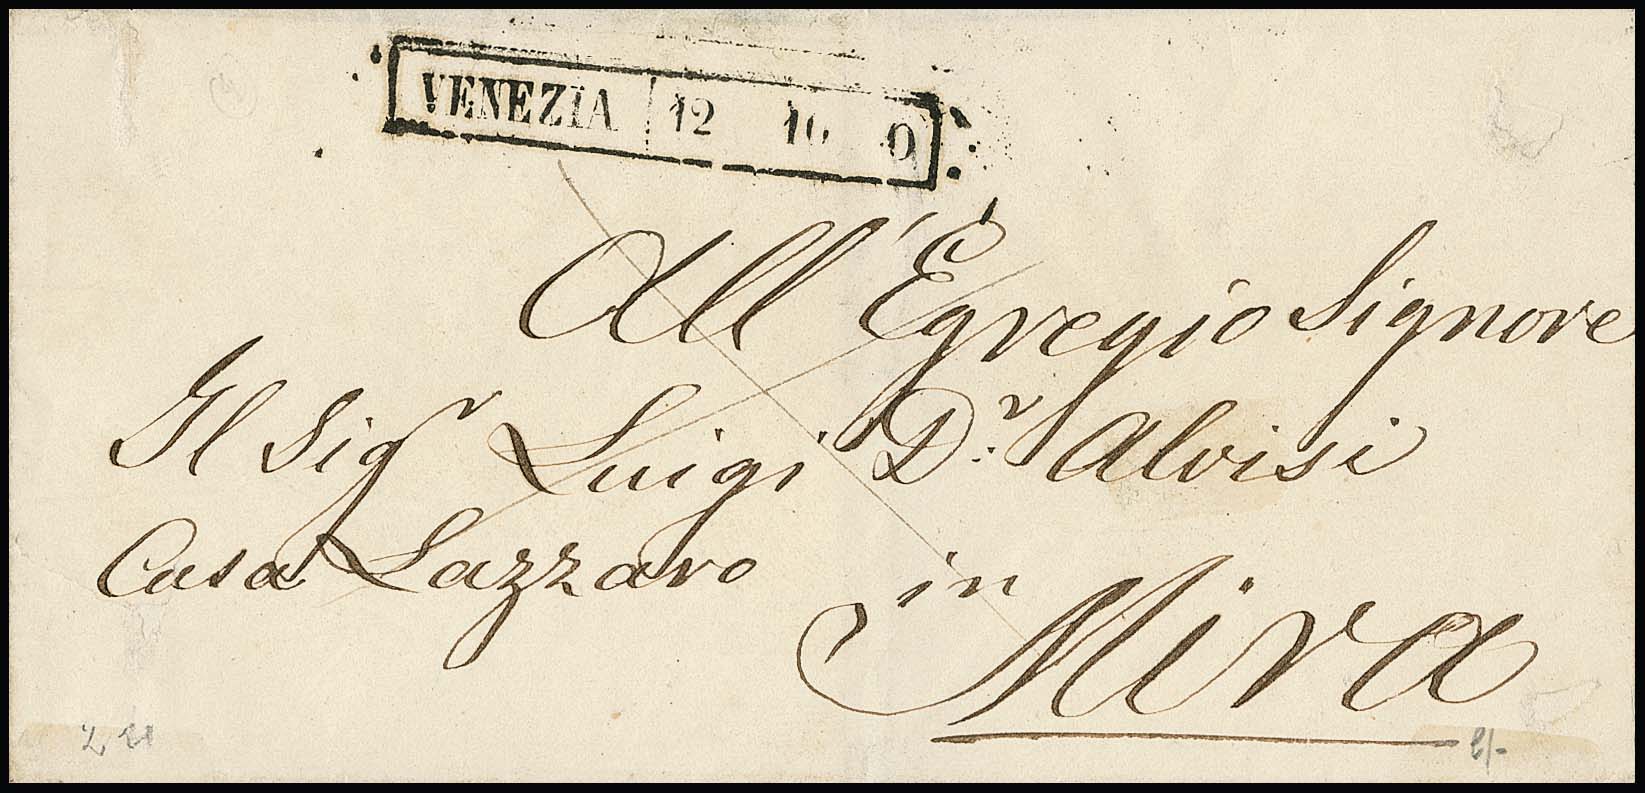 VENEZIA 12 10 O
All' Egregio Signore
Il Sigr Luigi Dr. Alvisi
Casa Lazzaro in
Mira